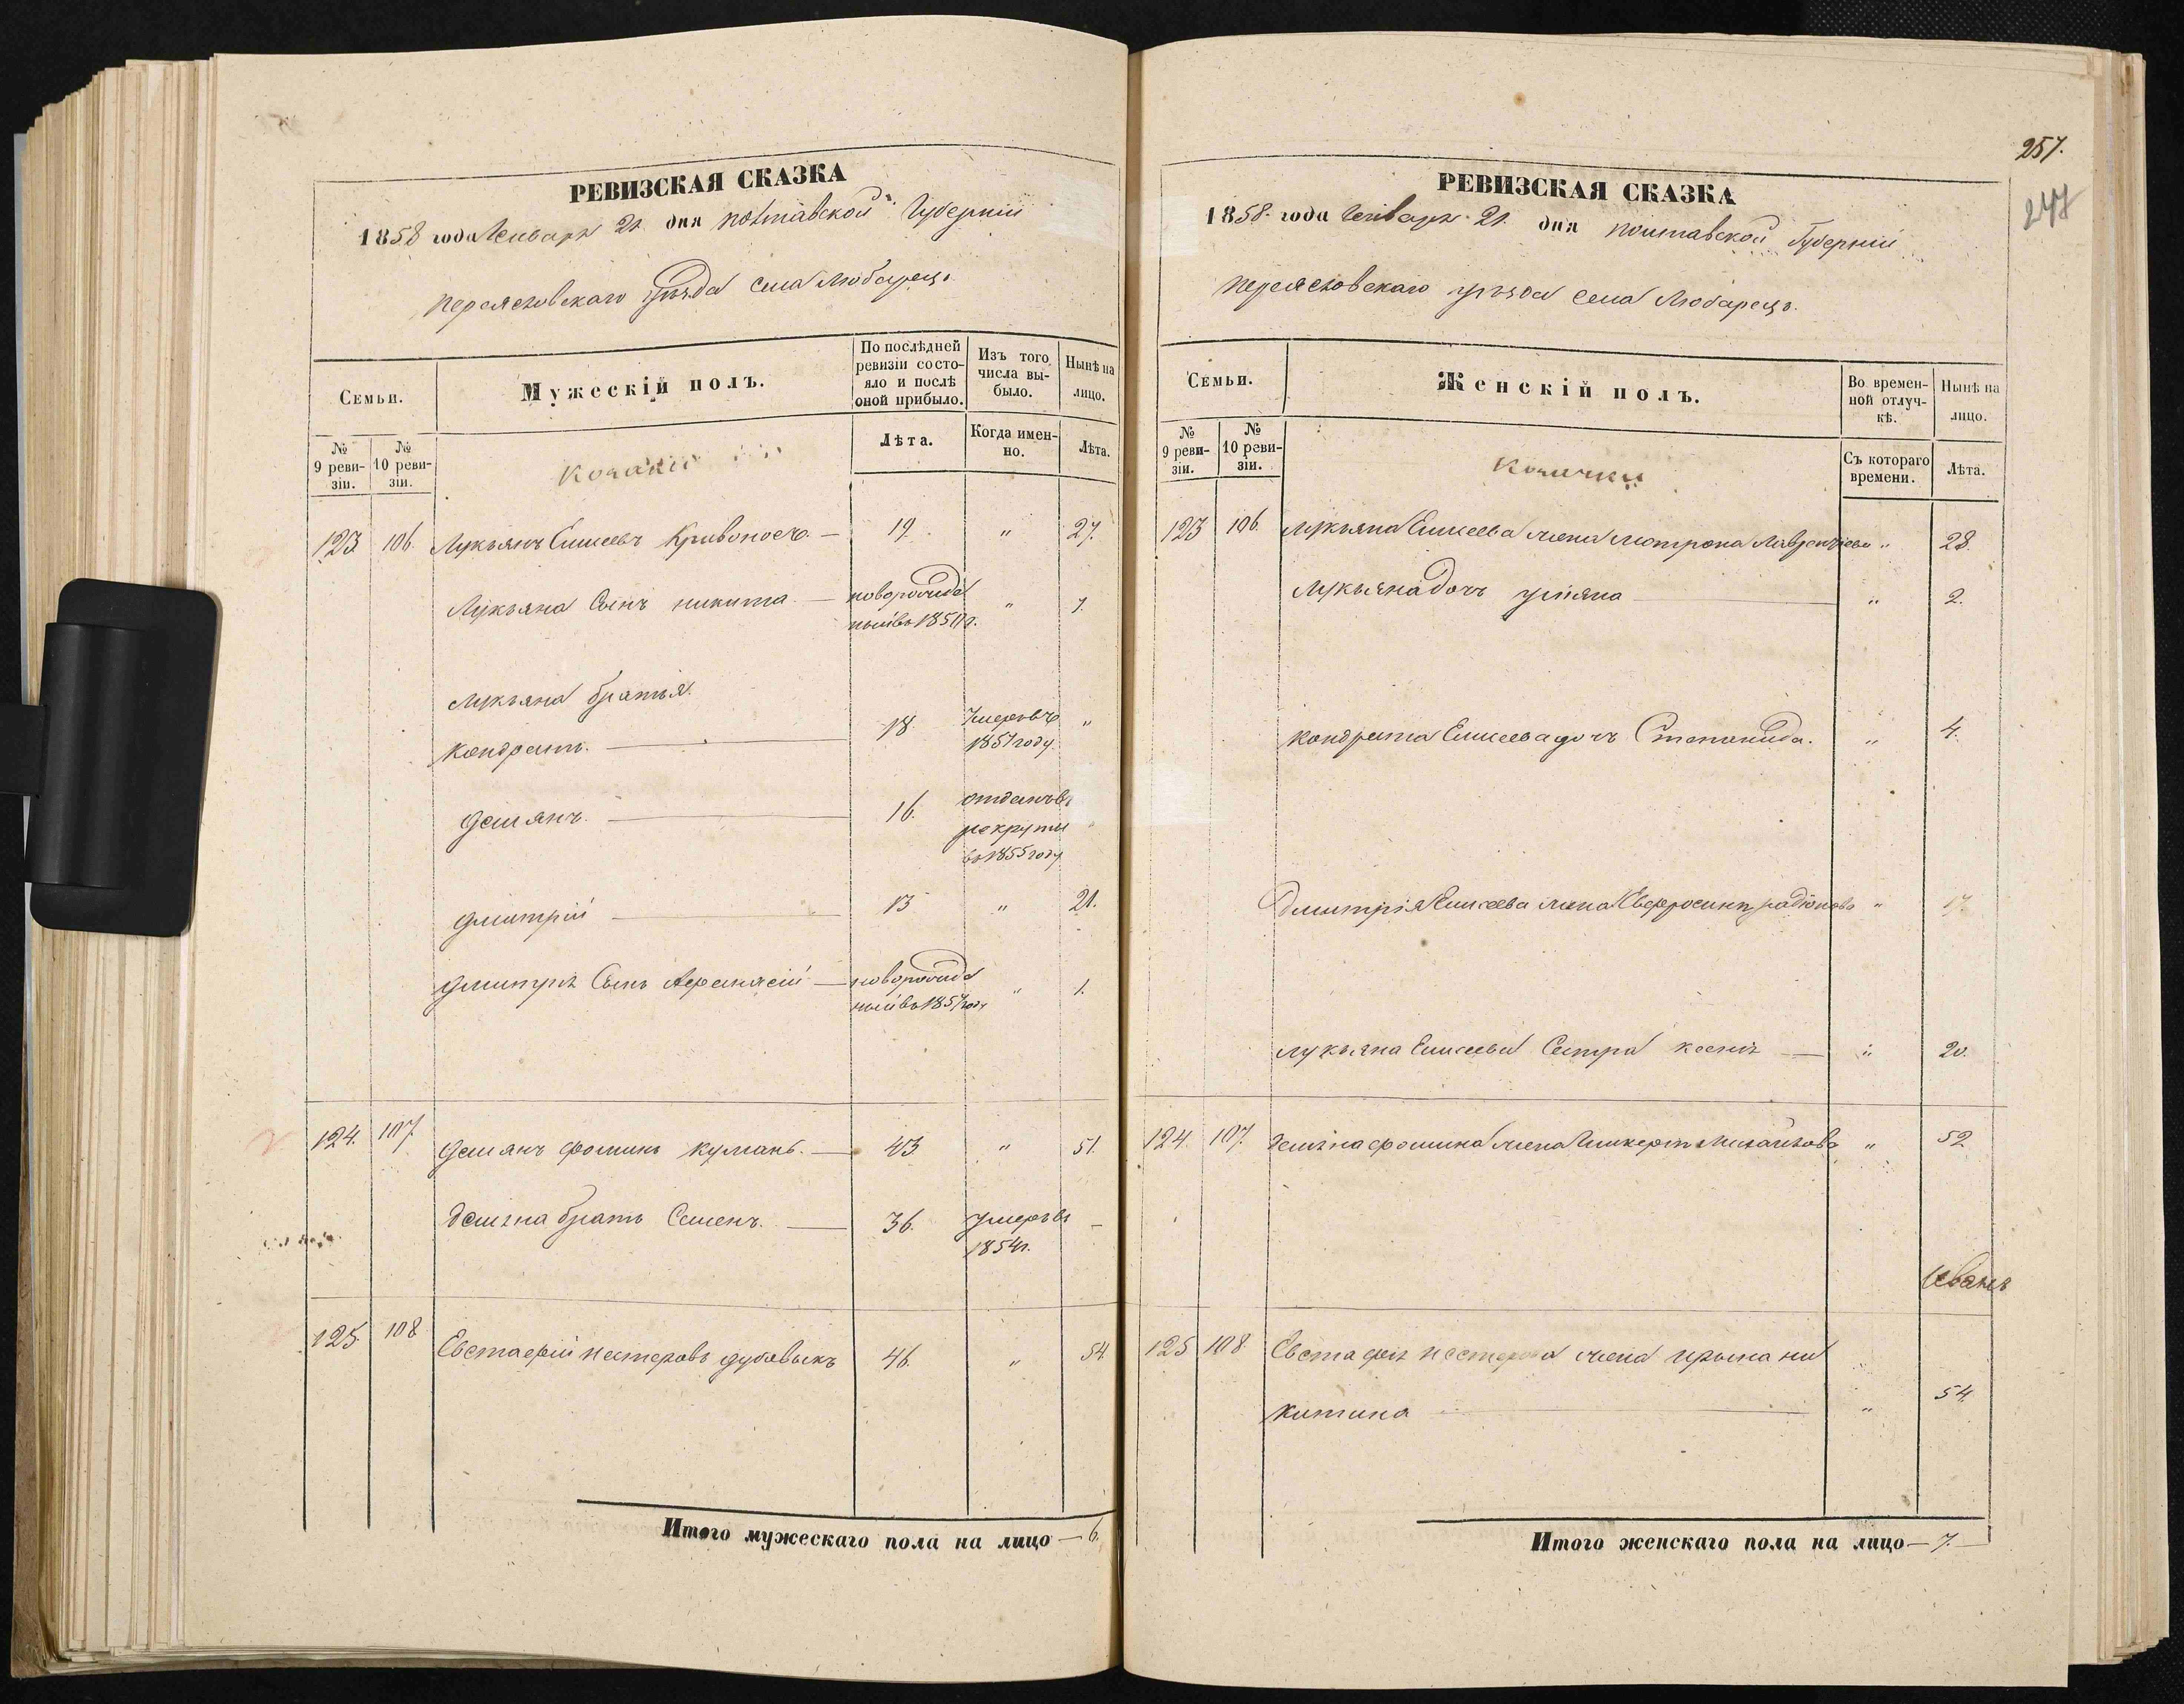 РЕВИЗСКАЯ СКАЗКА
1858 года Генваря 21 дня Полтавской Губерніи
Переясловскаго уѣзда села Любарецъ
Семьи.
Мужескій полъ.
По послѣдней ревизіи состояло и послѣ оной прибыло.
Изъ того числа выбыло.
Нынѣ на лицо.
№ 9 ревизіи.
№ 10 ревизіи.
Козаки
Лѣта.
Когда именно.
Лѣта.
123 106. Лукьянъ Елисеевъ Кривоносъ. — 19. " 27.
Лукьяна Сынъ никита — новорожде " 7.
ный въ 1850 г.
Лукьяна братья
Кондратъ. — 18. Умеръ въ "
1857 году
Демянъ. — 16. отданъ въ
рекруты
въ 1855 году
Дмитрій — 13 " 21.
Дмитрія Сынъ Афанасій — новорожде " 1.
ный въ 1857 году
124. 107 Демянъ Фоминъ Куманъ. — 43 " 51.
Демяна братъ Семенъ. — 36. Умеръ въ —
1854 г.
125. 108 Евстафій Нестеровъ 46. " 54
Итого мужескаго пола на лицо — 6.
257.
247
РЕВИЗСКАЯ СКАЗКА
1858. года Генваря 21. дня Полтавской Губерніи
Переясловскаго уѣзда села Любарецъ.
Семьи.
Женскій полъ.
Во временной отлучкѣ.
Нынѣ на лицо.
№ 9 ревизіи.
№ 10 ревизіи.
Козачки
Съ котораго времени.
Лѣта.
123 106. Лукьяна Елисеева жена Мотрона Лаврентіева " 28.
Лукьяна дочь Уліяна — " 2.
Кондрата Елисеева дочь Степанида. " 4.
Дмитрія Елисеева жена Евфросинія радіонова " 17.
Лукьяна Елисеева Сестра ксенія — " 20.
124. 107. Демяна Фомина жена Михайлова " 52
Иванъ
125 108. Евстафія Нестерова жена Ирына ни
китина — " 54.
Итого женскаго пола на лицо — 7.